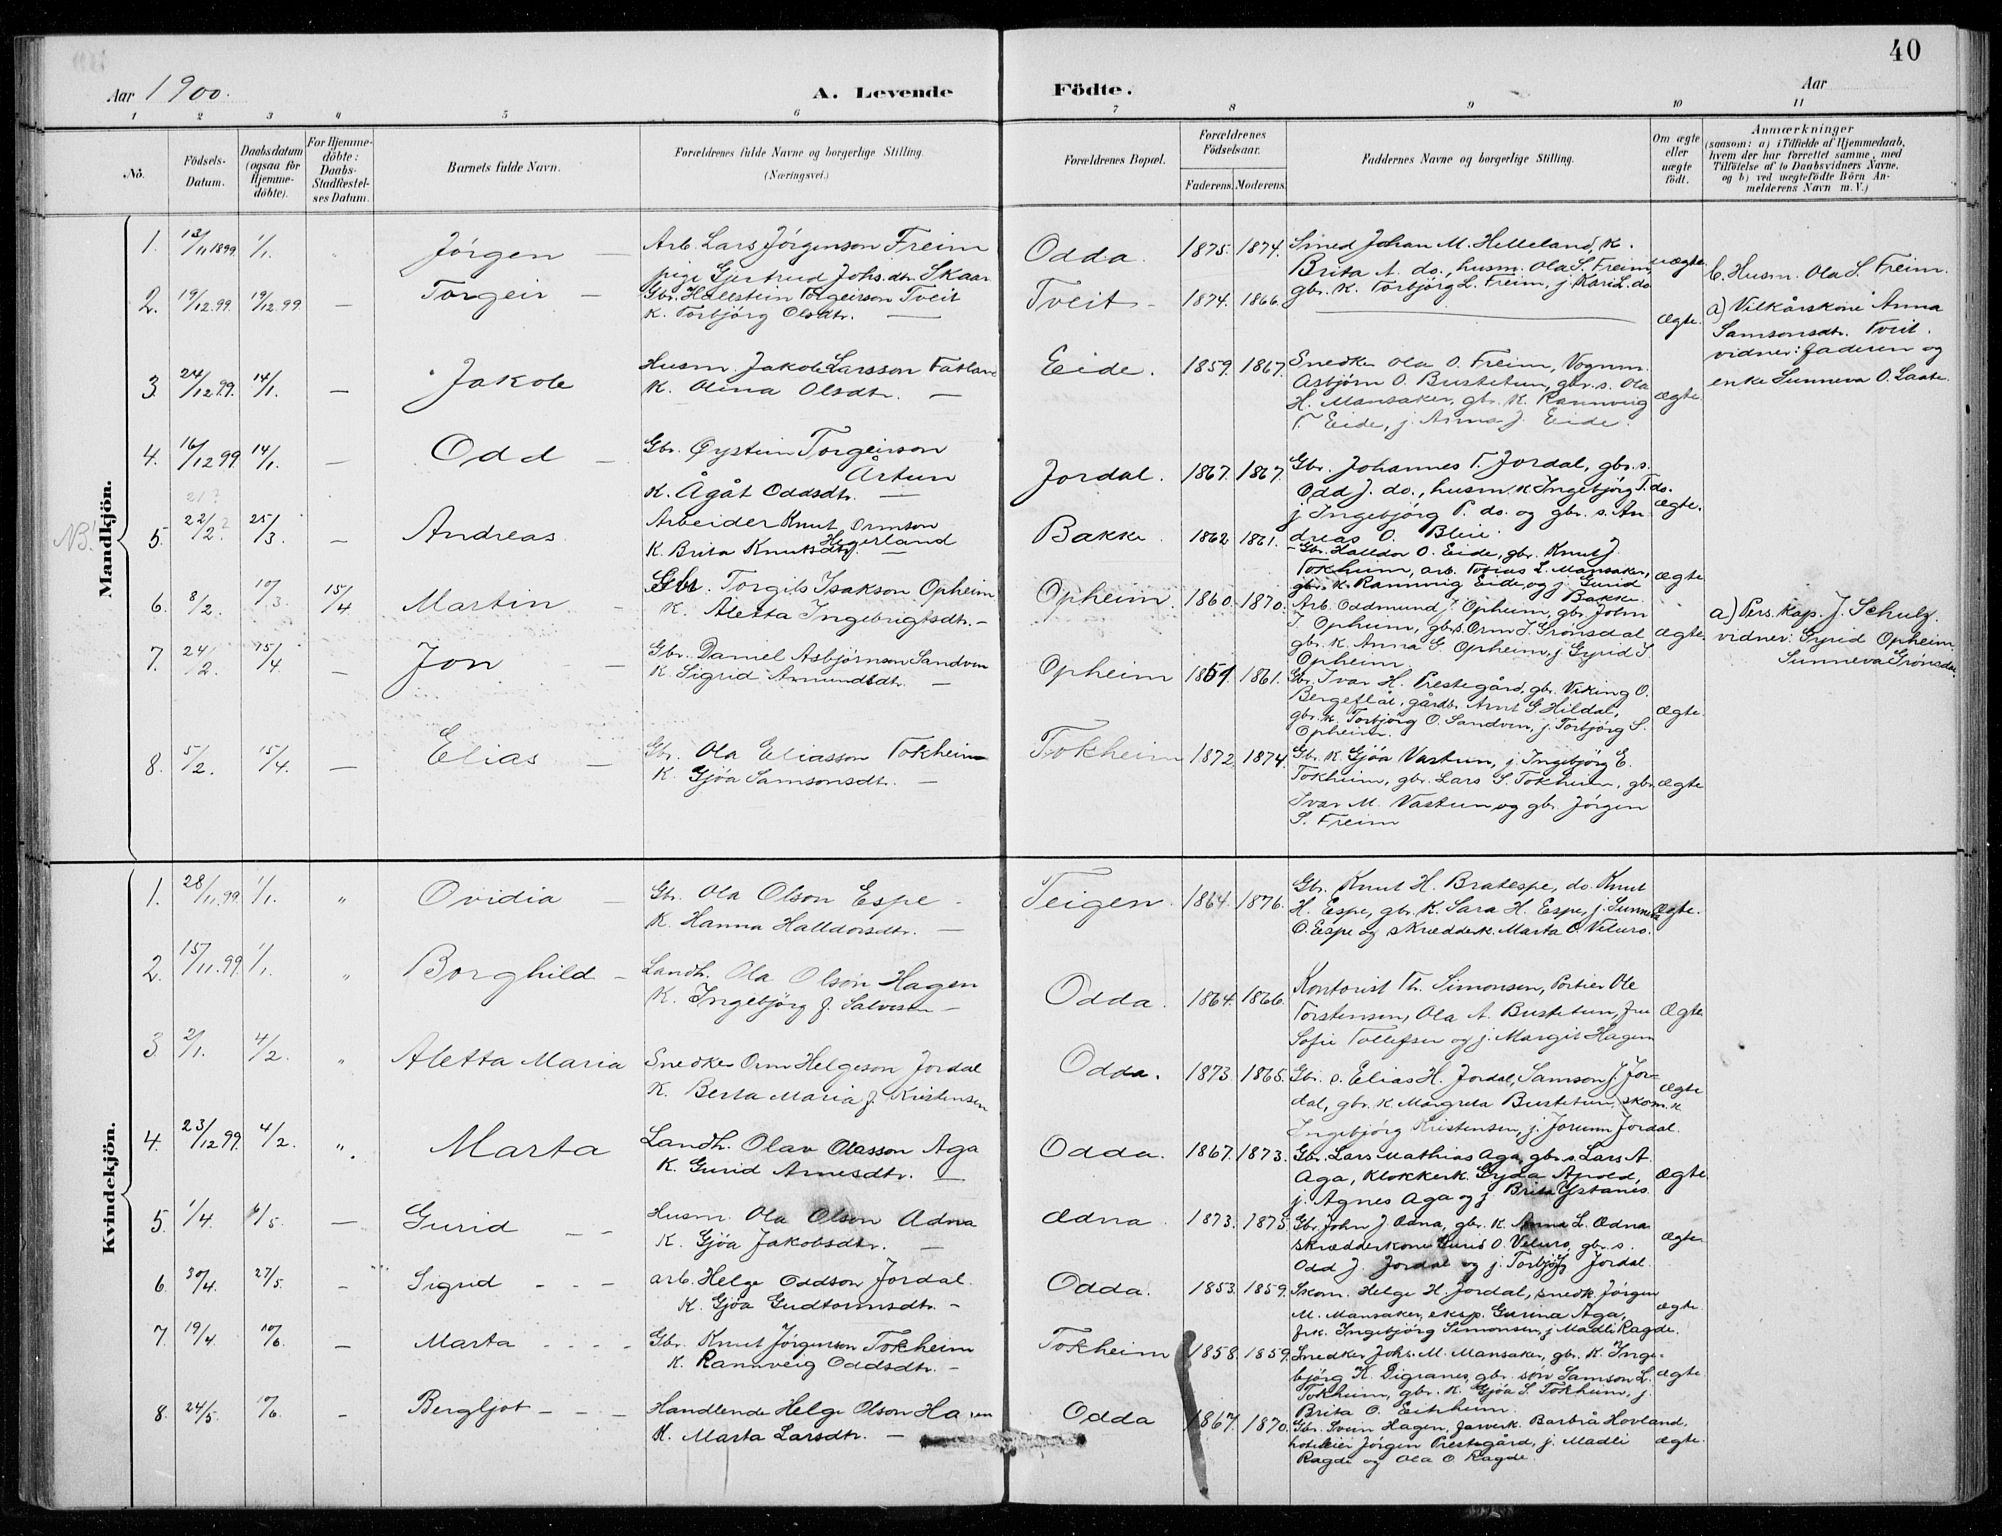 40
Aar 1900.
A. Levende Födte.
Aar
1 2 3 4 5 6 7 8 9 10 11
No.
Födsels-Datum.
Daabsdatum (ogsaa for Hjemme-döbte).
For Hjemme-döbte: Daabs-Stadfæstel-ses Datum.
Barnets fulde Navn.
Forældrenes fulde Navne og borgerlige Stilling. (Næringsvei.)
Forældrenes Bopæl.
Forældrenes Födselsaar.
Faderens. Moderens.
Faddernes Navne og borgerlige Stilling.
Om ægte eller uægte födt.
Anmærkninger
(saasom: a) i Tilfælde af Hjemmedaab,
hvem der har forrettet samme, med
Tilföielse af to Daabsvidners Navne,
og b) ved uægtefödte Börn An-
melderens Navn m. V.)
Mandkjön.
1. 13/11 1899. 1/1. " Jörgen —
Arb. Lars Jörgenson Freim
pige Gjertrud Johs.dtr. Skaar
Odda. 1875. 1874.
Smed Johan M. Helleland, K.
Brita A. do., husm. Ola S. Freim,
gbr. K. Torbjörg L. Freim, j. Kari L. do
uægte
b. Husm. Ola S. Freim.
2. 19/12.99. 19/12.99. — Torgeir —
Gbr. Hallstein Torgeirson Tveit
K. Torbjörg Olsdtr. —
Tveit — 1874. 1866.
ægte.
a) Vilkårskone Anna
Samsonsdtr. Tveit.
vidner: faderen og
enke Sunneva O. Laate.
3. 24/12.99. 14/1. — Jakob
Husm. Jakob Larsson Fatland
K. Olina Olsdtr. —
Eide. 1859. 1867.
Snedker Ola O. Freim, Vognm.
Asbjörn O. Bustetun, gbr. s. Ola
H. Mansaker, gbr. K. Rannveig
T. Eide, j. Anna J. Eide.
ægte.
4. 16/12 99. 14/1. — Odd —
Gbr. Öystein Torgeirson
Årtun
K. Ågåt Oddsdtr. —
Jordal. 1867. 1867.
Gbr. Johannes T. Jordal, gbr. s.
Odd J. do., husm. K. Ingebjörg T. do.
j. Ingebjörg P. do. og gbr. s. An-
dreas O. Bleie.
ægte.
NB!
21?
5. 22/2? 25/3. — Andreas
Arbeider Knut Ormson
Hegerland
K. Brita Knutsdtr. —
Bakke. 1862 1861.
Gbr. Halldor O. Eide, gbr. Knut J.
Tokheim, arb. Tobias L. Mansaker,
gbr. K. Rannveig Eide, og j. Gurid
Bakke.
ægte
6. 8/2. 10/3. 15/4 Martin —
Gbr. Torgils Isakson Opheim
K. Aletta Ingebrigtsdtr. —
Opheim. 1860. 1870.
Arb. Oddmund J. Opheim, gbr. John
J. Opheim, gbr. s. Orm J. Grönsdal
gbr. K. Anna S. Opheim, j. Gyrid S.
Opheim.
ægte
a) Pers. Kap. J. Schulz.
vidner: Gyrid Opheim,
Sunneva Grönsdal.
7. 24/2. 15/4 — Jon —
Gbr. Daniel Asbjörnson Sandven
K. Sigrid Amundsdtr. —
Opheim 1851. 1861.
Gbr. Ivar H. Prestegård, gbr. Viking O.
Bergeflåt, gårdb. Arnt G. Hildal,
gbr. K. Torbjörg O. Sandven, j. Torbjörg S.
Opheim.
ægte.
8. 5/2. 15/4. — Elias —
Gbr. Ola Eliasson Tokheim
K. Gjöa Samsonsdtr. —
Tokheim 1872. 1874.
Gbr. K. Gjöa Vastun, j. Ingebjörg E.
Tokheim, gbr. Lars S. Tokheim, gbr.
Ivar M. Vastun og gbr. Jörgen
S. Freim
ægte
Kvindekjön.
1. 28/11.99. 1/1. " Ovidia —
Gbr. Ola Olson Espe —
K. Hanna Halldorsdtr. —
Teigen. 1864. 1876.
Gbr. Knut H. Bratespe, do. Knut
H. Espe, gbr. K. Sara H. Espe, j. Sunneva
O. Espe og skrædderk. Marta O. Veluro.
Ægte.
2. 15/11.99. 1/1. " Borghild —
Landh. Ola Olson Hagen
K. Ingebjörg f. Salvesen —
Odda. 1864. 1866.
Kontorist Th. Simonsen, Portier Ole
Torstensen, Ola A. Bustetun, fru
Sofie Tollefsen og j. Margit Hagen
Ægte
3. 2/1. 4/2. " Aletta Maria
Snedker Orm Helgeson Jordal
K. Berta Maria f. Kristensen
Odda. 1873. 1865.
Gbr. s. Elias H. Jordal, Samson J. Jor-
dal, gbr. K. Margreta Bustetun, skom. K
Ingebjörg Kristensen, j. Jorunn Jordal.
ægte
4. 23/12 99. 4/2. ". Marta
Landh. Olav Olasson Aga
K. Gurid Arnesdtr. —
Odda. 1867. 1873.
Gbr. Lars Mathias Aga, gbr. s. Lars A.
Aga, Klokkerk. Gyda Apold,
j. Agnes Aga og j. Brita Ystanes.
ægte.
5. 1/4. 6/5. — Gurid — —
Husm. Ola Olson Ædna
K. Gjöa Jakobsdtr. —
Ædna. 1873. 1875.
Gbr. John J. Ædna, gbr. K. Anna L. Ædna
Skrædderkone Gurid O. Veluro, gbr. s.
Odd J. Jordal og j. Torbjörg Jordal.
ægte
6. 30/4. 27/5. — Sigrid - - -
arb. Helge Oddson Jordal.
K. Gjöa Gudtormsdtr. —
Odda. 1853. 1859.
Skom. Helge H. Jordal, snedk. Jörgen
M. Mansaker, eksp. Gurina Aga,
frk. Ingebjörg Simonsen, j. Madli Ragde.
ægte
7. 19/4 10/6. — Marta - - - -
Gbr. Knut Jörgenson Tokheim
K. Rannveig Oddsdtr. —
Tokheim 1858. 1859.
Snedker Johs. M. Mansaker, gbr. K. Inge-
björg K. Digranes, gbr. sön Samson L.
Tokheim, gbr. K. Gjöa S. Tokheim, j.
Brita O. Eitrheim.
ægte.
8. 24/5. 10/6. — Bergljot - - -
Handlende Helge Olson Hagen
K. Marta Larsdtr. —
Odda 1867. 1870.
Gbr. Svein Hagen, Barbrå Hovland,
hoteleier Jörgen Prestegård, j. Madli
Ragde og Ola O. Ragde.
ægte.